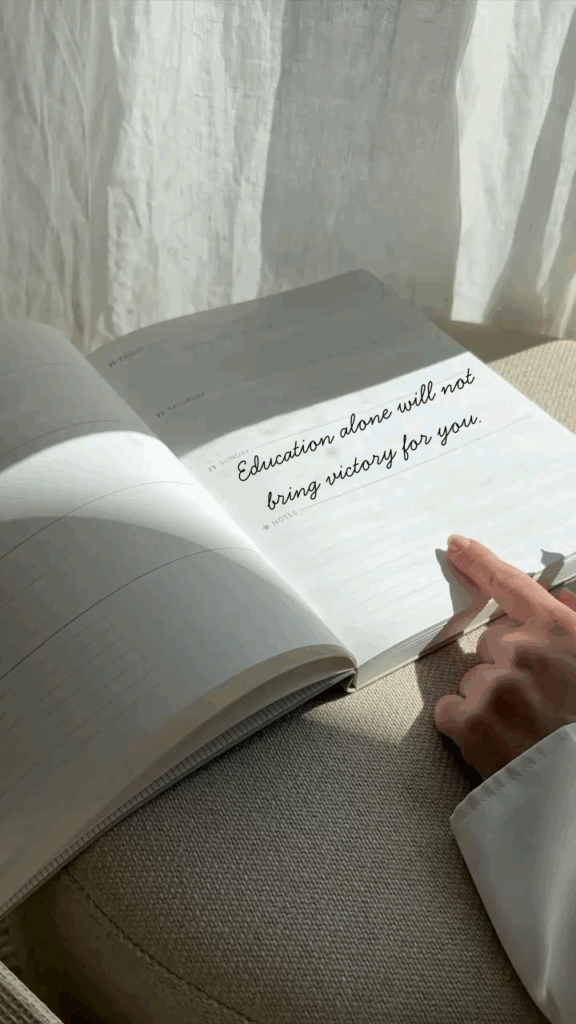 22 SATURDAY
23 SUNDAY
Education alone will not
bring victory for you.
NOTES